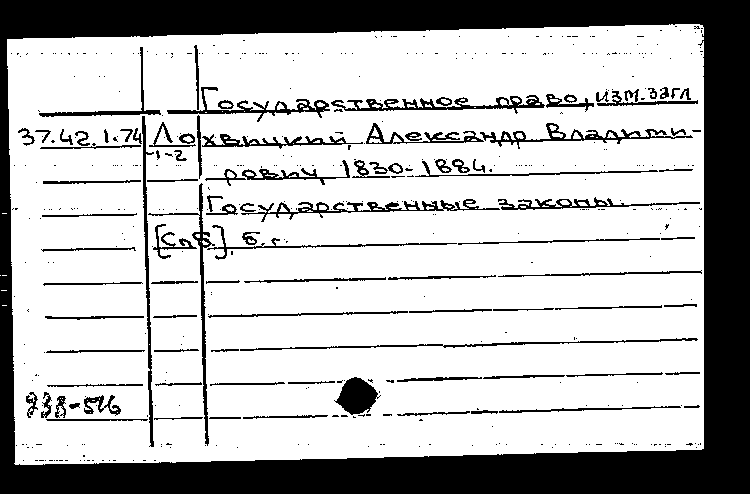 Государственное право, изм. загл
37.42.1.74 Лохвицкий, Александр Владими-
-1-2
рович, 1830-1884.
Государственные законы.
[Спб.], б. г.
238-516